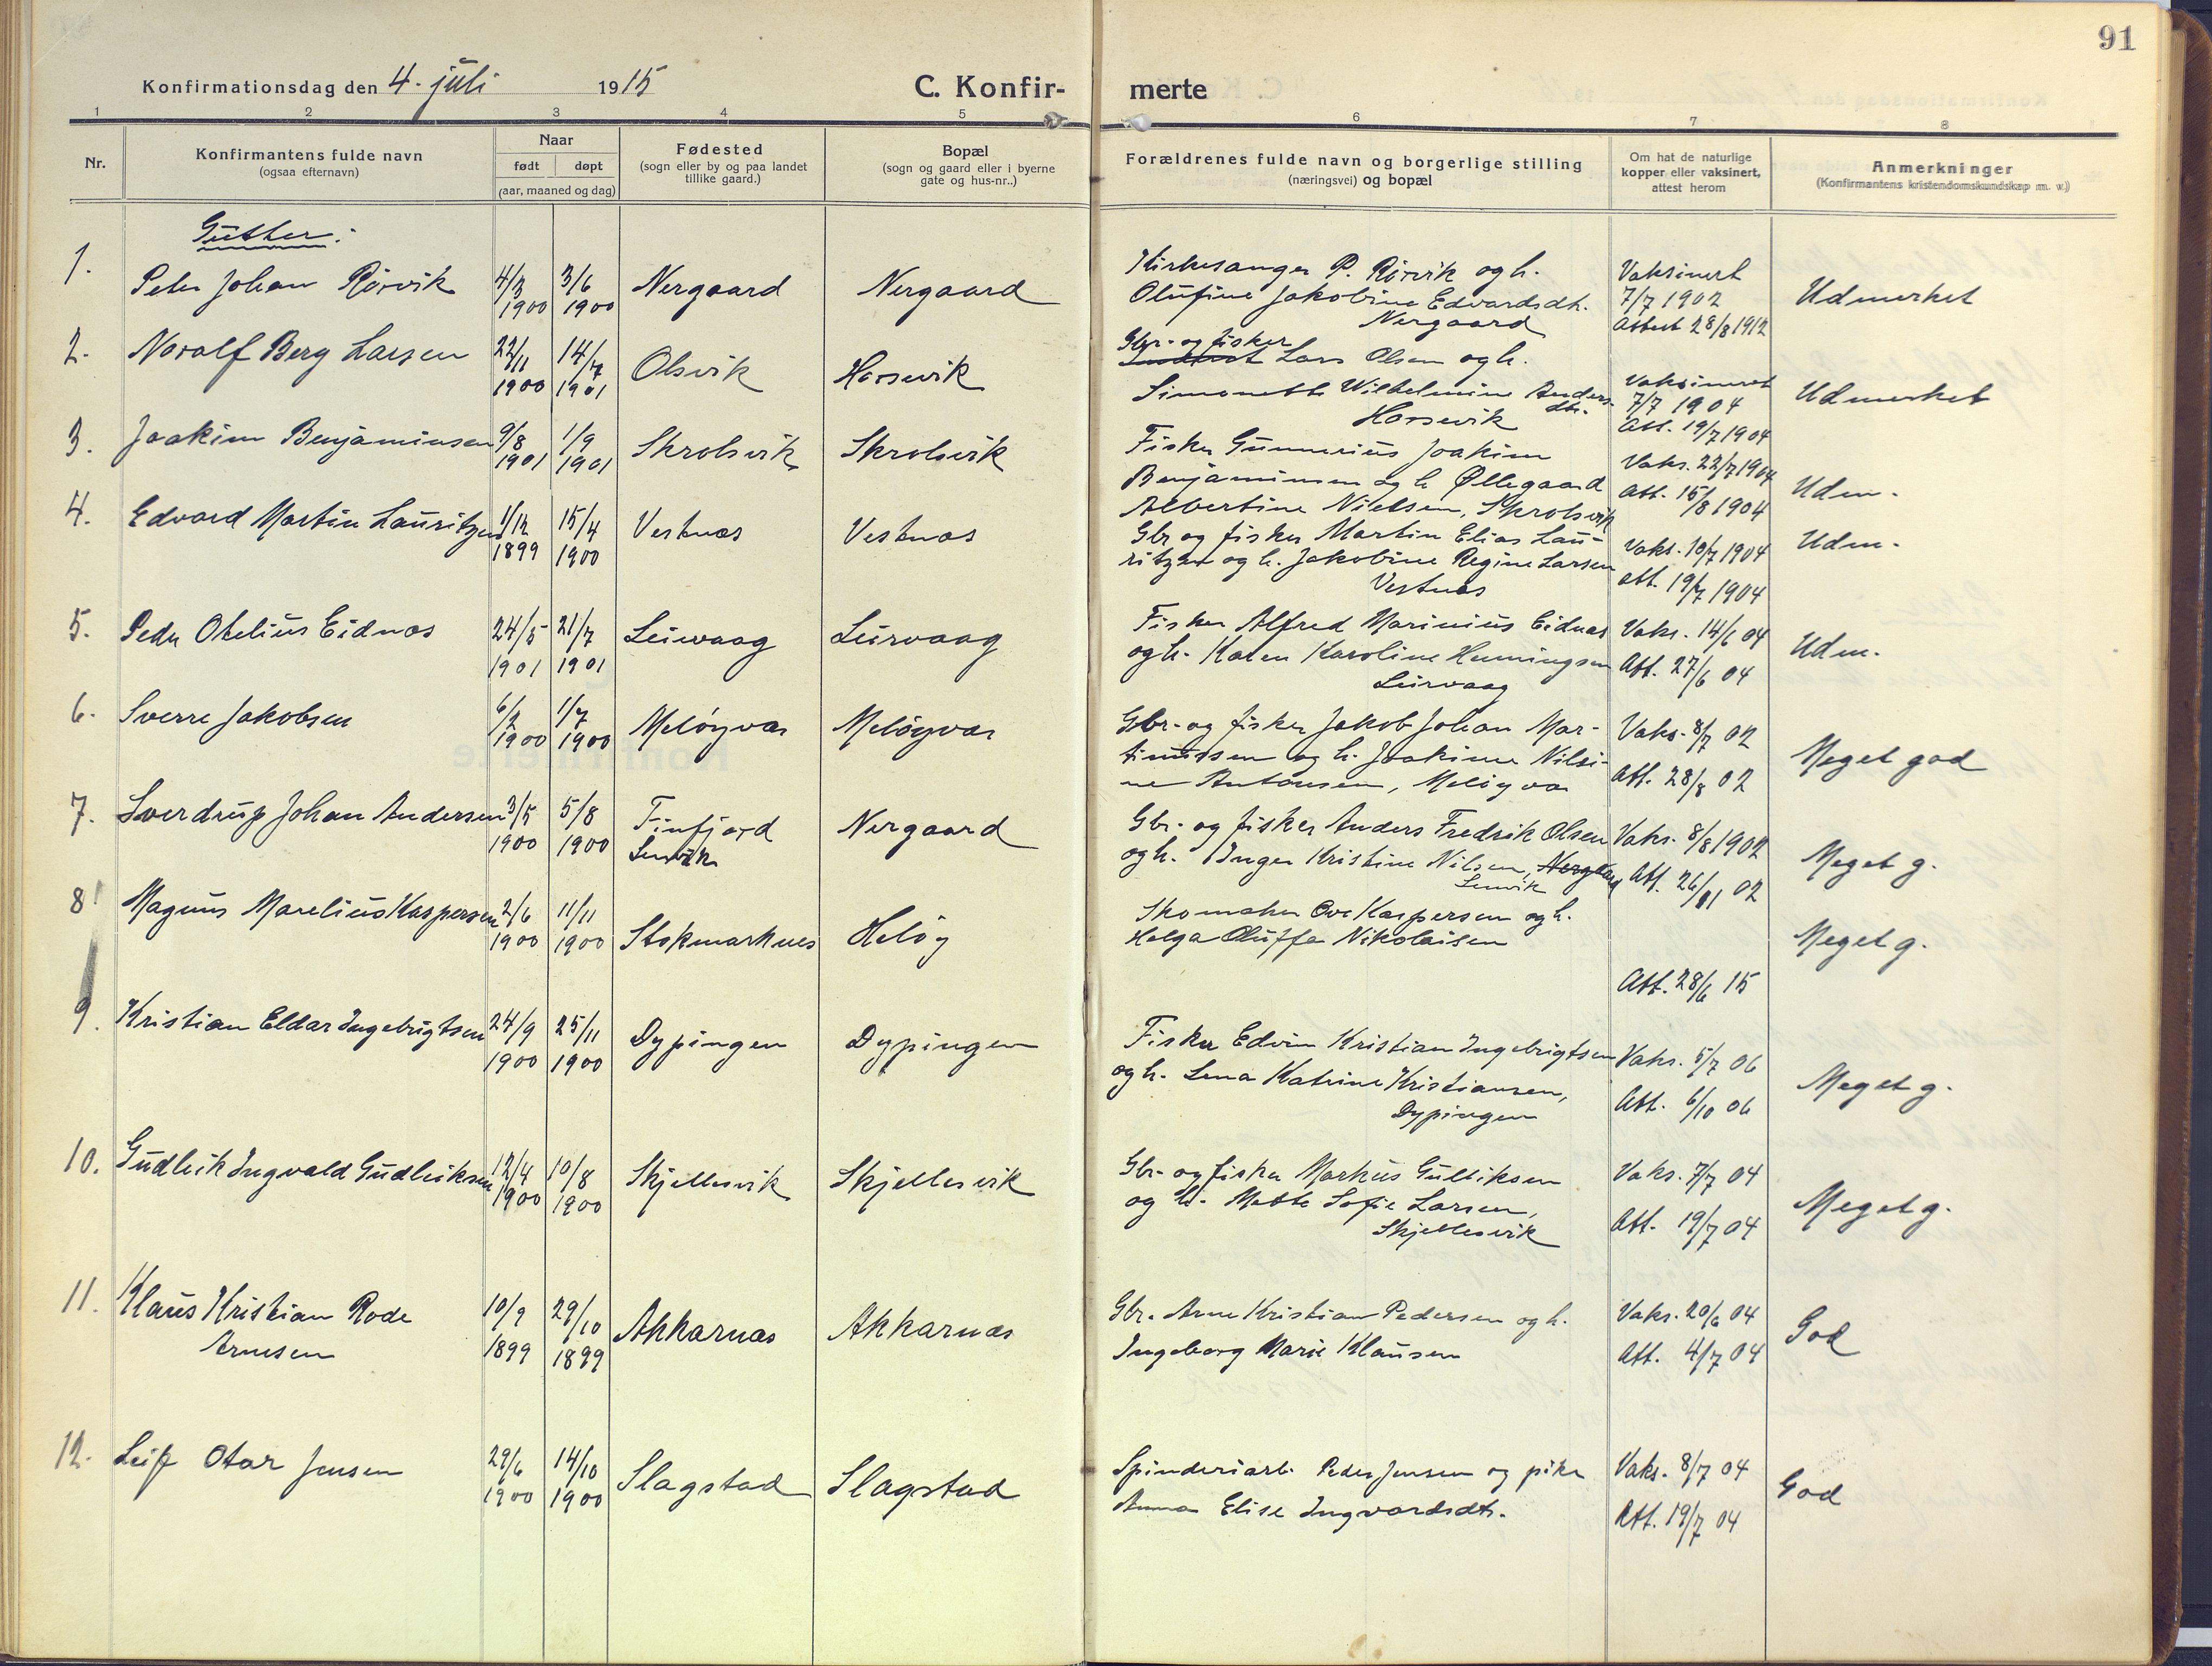 91
Konfirmationsdag den 4. juli 1915
C. Konfir-
merte
1 2 3 4 5 6 7 8
Nr.
Konfirmantens fulde navn
(ogsaa efternavn)
Naar
født døpt
(aar, maaned og dag)
Fødested
(sogn eller by og paa landet
tillike gaard.)
Bopæl
(sogn og gaard eller i byerne
gate og hus-nr..)
Forældrenes fulde navn og borgerlige stilling
(næringsvei) og bopæl
Om hat de naturlige
kopper eller vaksinert,
attest herom
Anmerkninger
(Konfirmantens kristendomskundskap m. v.)
Gutter:
1. Peter Johan Rørvik 4/3 1900 3/6 1900 Nergaard Nergaard
Kirkesanger P. Rørvik og h.
Olufine Jakobine Edvardsdt.
Nergaard
Vaksinert
7/7 1902
Attest 28/8 1912
Udmerket
2. Noralf Berg Larsen 22/11 1900 14/7 1901 Olsvik Horsevik
Gbr- og fisker
Lars Olsen og h.
Simonette Wilhelmine Anders-
dtr.
Horsevik
Vaksineret
7/7 1904
Att. 19/7 1904
Udmerket
3. Joakim Benjaminsen 9/8 1901 1/9 1901 Skrolsvik Skrolsvik
Fisker Gunnerius Joakim
Benjaminsen og h Øllegaard
Albertine Nielsen, Skrolsvik
Vaks. 22/7 1904
Att. 15/8 1904
Udm.
4. Edvard Martin Lauritzen 1/12 1899 15/4 1900 Vestnæs Vestnæs
Gbr og fisker Martin Elias Lau-
ritzen og h. Jakobine Regine Larsen
Vestnæs
Vaks. 10/7 1904
Att. 19/7 1904
Udm.
5. Peder Otelius Eidnæs 24/5 1901 21/7 1901 Leirvaag Leirvaag
Fisker Alfred Marinius Eidnæs
og h. Karen Karoline Henningsen
Leirvaag
Vaks. 14/6 04
Att. 27/6 04
Udm.
6. Sverre Jakobsen 6/2 1900 1/7 1900 Meløyvær Meløyvær
Gbr- og fisker Jakob Johan Mar-
tinussen og h. Joakime Nilsi-
ne Antonsen, Meløyvær
Vaks. 8/7 02
Att. 28/8 02
Meget god
7. Sverdrup Johan Andersen 3/5 1900 5/8 1900 Finfjord
Lenvik Nergaard
Gbr- og fisker Anders Fredrik Olsen
og h. Inger Kristine Nilsen, Nergaard
Lenvik
Vaks. 8/8 1902
Att. 26/11 02
Meget g.
8 Magnus Marelius Kaspersen 2/6 1900 11/11 1900 Stokmarknes Heløy
Skomaker Ove Kaspersen og h.
Helga Oluffa Nikolaisen
Att. 28/6 15
Meget g.
9. Kristian Eldar Ingebrigtsen 24/9 1900 25/11 1900 Dypingen Dypingen
Fisker Edvin Kristian Ingebrigtsen
og h. Lena Katrine Kristiansen,
Dypingen
Vaks. 5/7 06
Att. 6/10 06
Meget g.
10. Gudleik Ingvald Gudleiksen 12/4 1900 10/8 1900 Skjellesvik Skjellesvik
Gbr- og fisker Markus Gulliksen
og h. Mette Sofie Larsen,
Skjellesvik
Vaks. 7/7 04
Att. 19/7 04
Meget g.
11. Klaus Kristian Rode
Arnesen 10/9 1899 29/10 1899 Akkarnæs Akkarnæs
Gbr. Arne Kristian Pedersen og h.
Ingeborg Marie Klausen
Vaks. 20/6 04
Att. 4/7 04
God
12. Leif Otar Jensen 29/6 1900 14/10 1900 Slagstad Slagstad
Spinderiarb. Peder Jensen og pike
Anna Elise Ingvardsdt.
Vaks. 8/7 04
Att. 19/7 04
God